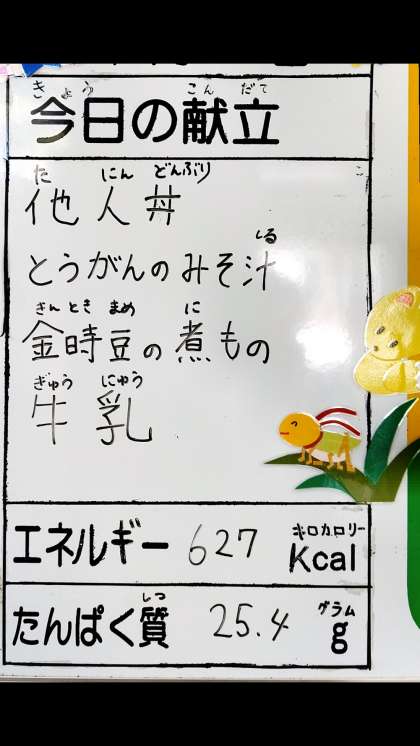 きょう こんだて
今日の献立
た にん どんぶり
他人丼
しる
とうがんのみそ汁
きんとき まめ に
金時豆の煮もの
ぎゅう にゅう
牛乳
キロカロリー
エネルギー 627 Kcal
しつ グラム
たんぱく質 25.4 g